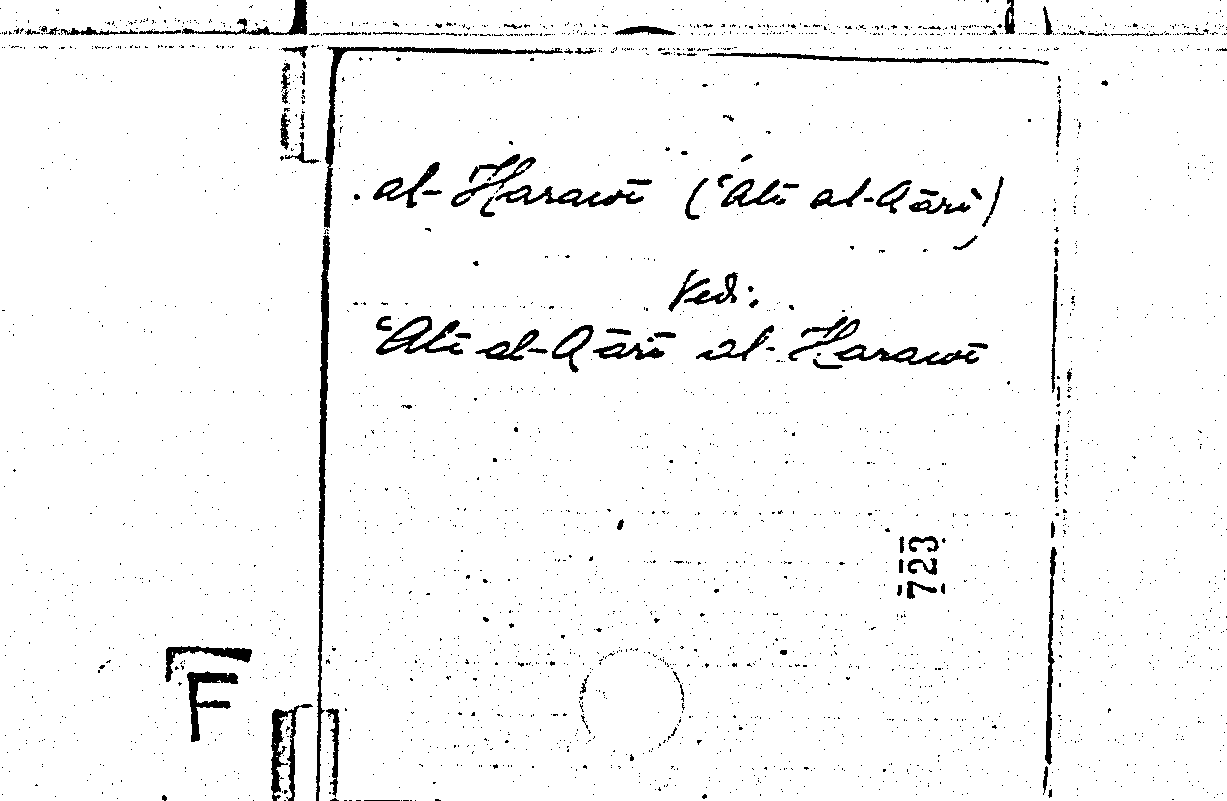 al-Harawī (ʿAlī al-Qārī)
Vedi:
ʿAlī al-Qārī al-Harawī
723
F